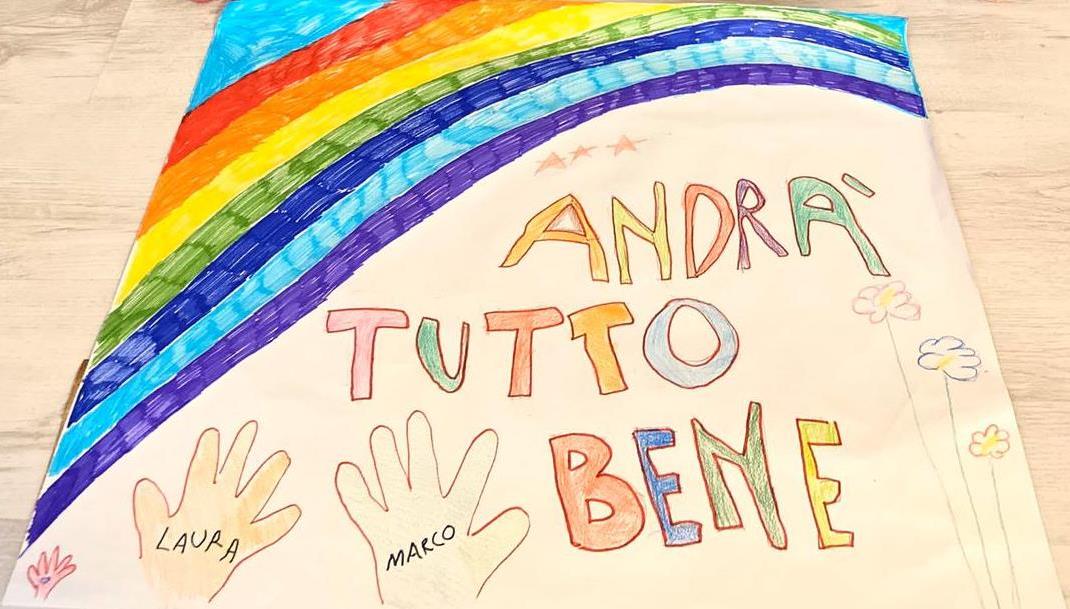 ANDRA`
TUTTO
BENE
LAURA
MARCO